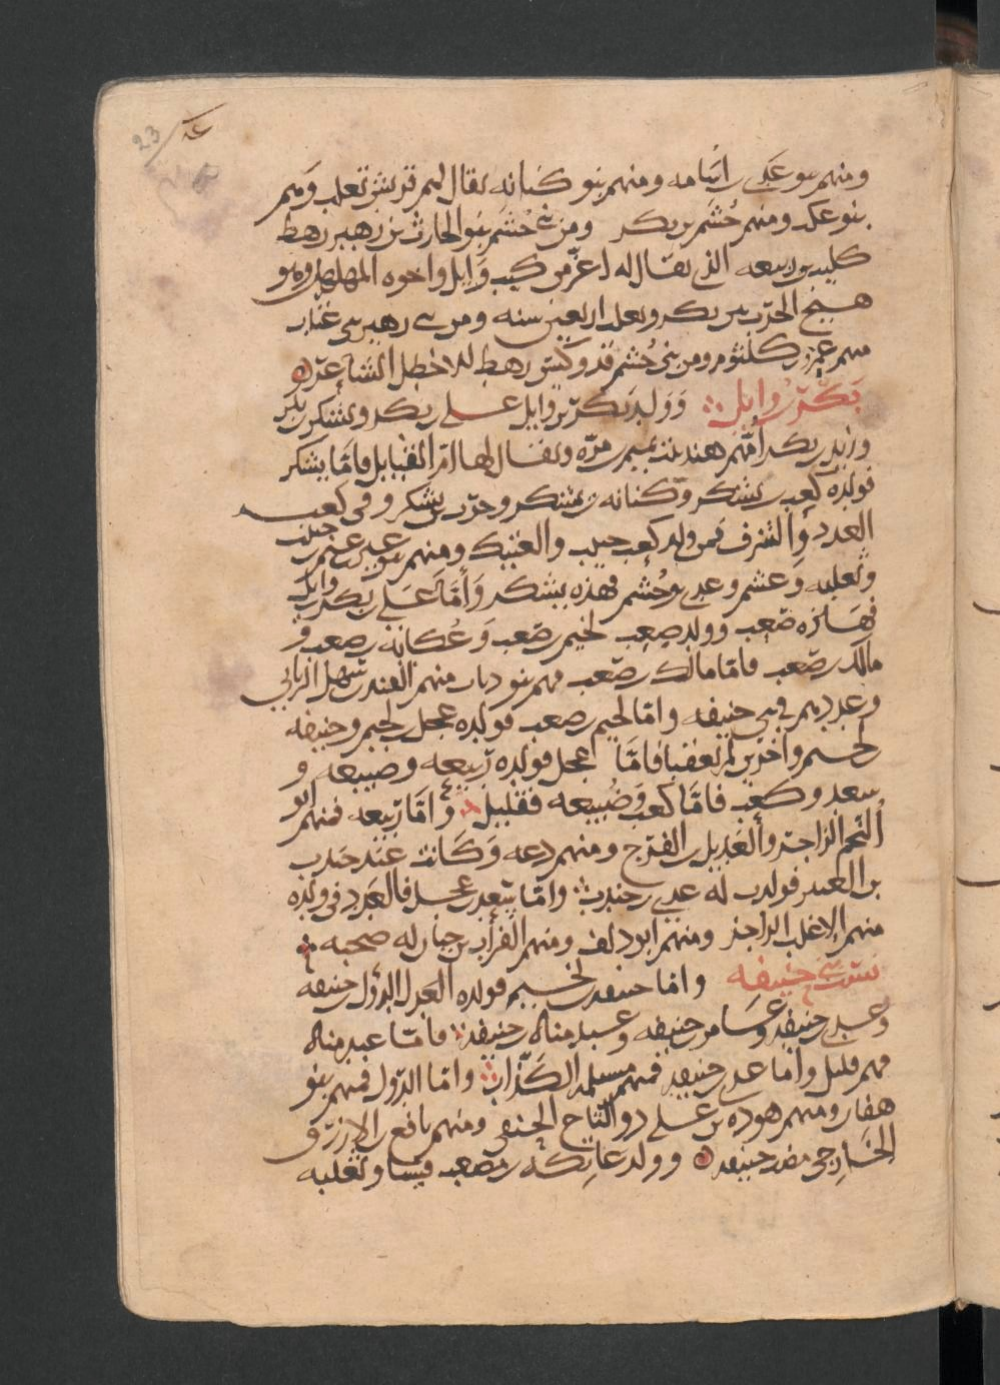 23
ومنهم بنو عكب اسامه ومنهم بنو كنانه يقال لهم قريش تغلب ومنهم
بنو عكب ومنهم جُشَم بن بكر ومن بنى جُشَم بنو الحارث بن زهير رهط
كليب بن ربيعه الذى يقال له اعزّ من كليب وَايل واخوه المهلهل وهو
هيّج الحرْب بين بكر وتغلب اربعين سنه ومن بنى زهير بنى عتاب
منهم عمرو بن كلثوم ومن بنى جُشم فدوكس رهط الاخطل الشاعر
بَكر بن وايل وَوَلد بَكر بن وايل على بن بكر ويشكر بن بكر
وبدن بن بكر امّهم هند بنت تميم بن مرّه ويقال لها امّ القبايل فامّا يشكر
فولده كعب بن يشكر وكنانه بن يشكر وحرب بن يشكر وفى كعب
العدد والشرف فمن ولد كعب حبيب والعتيك ومنهم بنو غبر بن غنم بن حبيب
وثعلبه وَعشم وعدى وجُشم فهذه يشكر وَأمّا عَلى بن بكر بن وايل
فهَاؤه صَعب وولد صعب لجيم بن صَعب وَعُكابَه بن صعب و
مالك بن صَعب فامّا مالك بن صَعب فهم بنو زمان منهم الفند شهل الزمانى
وعددهم فى بنى حنيفه وامّا لجيم بن صعب فولده عجل بن لجيم وحنيفه بن
لجيم واخرين لم يعقبا فامّا عجل فولده رَبيعه وضبيعه و
سعد وكعب فامّا كعب وَضُبيعه فقليل وامّا رَبيعه فمنهم ابو
النّجم الراجز والعَديل بن الفرخ ومنهم دعه وَكَانت عند جندب
بن العنبر فولدت له عدى بن جندب وامّا سعد بن عجل فالعَدد فى ولده
منهم الاغلب الراجز ومنهم ابو دلف ومنهم الفرات بن حيان له صحبه
نسب بنى حنيفه وامّا حنيفه بن لجيم فولده العدل الدؤل بن حنيفه
وعدى بن حنيفه وعَامر بن حنيفه وعبد مناه بن حنيفه فامّا عبد مناه
فهم قليل وامّا عدى بن حنيفه فمنهم مسيلمه الكذّاب وامّا الدؤل فمنهم بنو
هفان ومنهم هوذه بن على ذو التاج الحنفى ومنهم نافع بن الازرق
الخَارجى من حنيفه وولد عكابه بن صعب قيسا وثعلبه